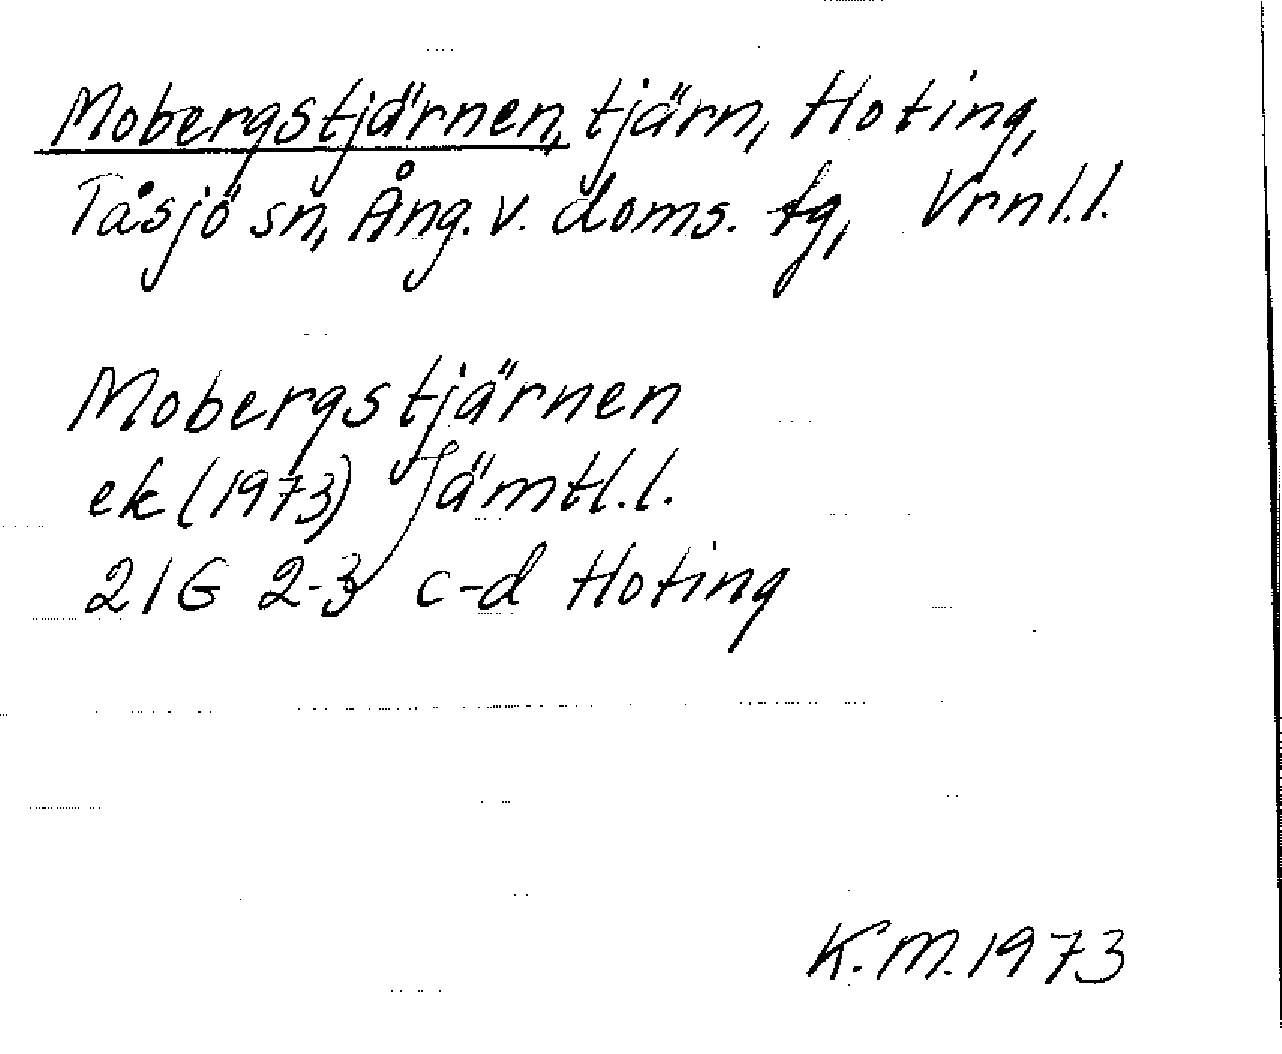 Mobergstjärnen, tjärn, Hoting,
Tåsjö sn, Ång. v. doms. tg, Vrnl.l.
Mobergstjärnen
ek (1973) Jämtl.l.
21G 2-3 c-d Hoting
K.M. 1973